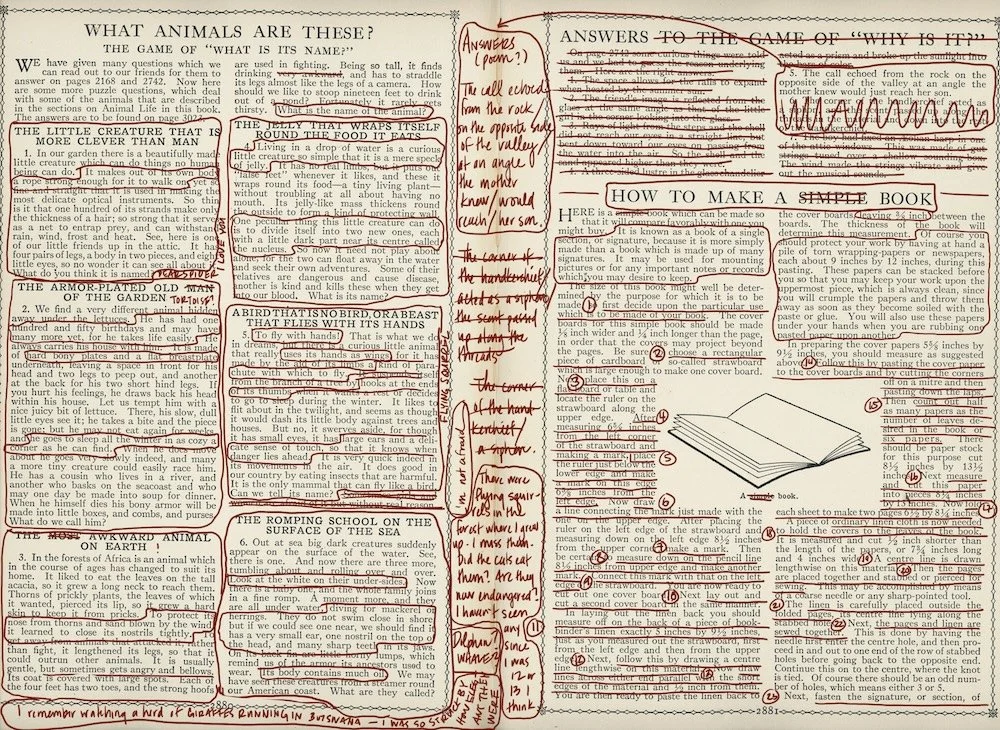 WHAT ANIMALS ARE THESE?
THE GAME OF "WHAT IS ITS NAME?"
WE have given many questions which we
can read out to our friends for them to
answer on pages 2168 and 2742. Now here
are some more puzzle questions, which deal
with some of the animals that are described
in the sections on Animal Life in this book.
The answers are to be found on page
THE LITTLE CREATURE THAT IS
MORE CLEVER THAN MAN
1. In our garden there is a beautifully made
little creature which can do things no human
being can do. It makes out of its own body
a rope strong enough for it to walk on yet so
fine and straight that it is used in making the
most delicate optical instruments. So thin
is it that one hundred of its strands make only
the thickness of a hair; so strong that it serves
as a net to entrap prey, and can withstand
rain, wind, frost and heat. See, here is one
of our little friends up in the attic. It has
four pairs of legs, a body in two pieces, and eight
little eyes, so no wonder it can see all about it.
What do you think it is named?
THE ARMOR-PLATED OLD MAN
OF THE GARDEN TORTOISE?
2. We find a very different animal hiding
away under the lettuces. He has had one
hundred and fifty birthdays and may have
many more yet, for he takes life easily. He
always carries his house with him. It is made
hard bony plates and a flat breastplate
underneath, leaving a space in front for his
head and two legs to peep out, and another
at the back for his two short hind legs. If
you hurt his feelings, he draws back his head
within his house. Let us tempt him with a
nice juicy bit of lettuce. There, his slow, dull
little eyes see it; he takes a bite and the piece
is gone; but he may not eat again for weeks.
he goes to sleep all the winter in as cozy a
corner as he can find. When he does move
about he goes very slowly indeed, and many
a more tiny creature could easily race him.
He has a cousin who lives in a river, and
another who basks on the seacoast and who
may one day be made into soup for dinner.
When he himself dies his bony armor will be
made into little boxes, and combs, and purses.
What do we call him?
THE MOST AWKWARD ANIMAL
ON EARTH!
3. In the forests of Africa is an animal which
in the course of ages has changed to suit its
home. It liked to eat the leaves on the tall
acacia, so it grew a long neck to reach them.
Thorns of prickly plants, the leaves of which
it wanted, pierced its lip, so it grew a hard
skin to keep it from pricks. To protect its
nose from thorns and sand blown by the wind
it learned to close its nostrils tightly.
fight, it lengthened its legs, so that it
could outrun other animals. It is usually
gentle, but sometimes gets angry and bellows.
Its coat is covered with large spots. Each of
the four feet has two toes, and the strong hoofs
are used in fighting. Being so tall, it finds
drinking very awkward, and has to straddle
its legs almost like the legs of a camera. How
should we like to stoop nineteen feet to drink
out of a pond? Fortunately it rarely gets
thirsty. What is the name of the animal?
THE JELLY THAT WRAPS ITSELF
ROUND THE FOOD IT EATS
4. Living in a drop of water is a curious
little creature so simple that it is a mere speck
of jelly. It has no real limbs, but it puts out
"false feet" whenever it likes, and then it
wraps round its food—a tiny living plant—
without troubling at all about having no
mouth. Its jelly-like mass thickens round
the outside to form a kind of protecting wall.
One peculiar thing this little creature can do
is to divide itself into two new ones, each
with a little dark part near its centre called
the nucleus. So now it need not play about
alone, for the two can float away in the water
and seek their own adventures. Some of their
relatives are dangerous and cause disease,
another is kind and kills these when they get
into our blood. What is its name?
A BIRD THAT IS NO BIRD, OR A BEAST
THAT FLIES WITH ITS HANDS
5. To fly with hands! That is what we do
in dreams, but there is a curious little animal
that really uses its hands as wings, for it has
by the aid of its thumbs a kind of para-
chute with which to fly, and it
from the branch of a tree. It hooks at the ends
of its thumbs when it wants to rest or decides
to go to sleep during the winter. It likes to
flit about in the twilight, and seems as though
it would dash its little body against trees and
houses. But no, it swerves aside, for though
it has small eyes, it has large ears and a deli-
cate sense of touch, so that it knows when
danger lies ahead. It is very quick indeed in
its movements in the air. It does good in
our country by eating insects that are harmful.
It is the only mammal that can fly like a bird.
Can we tell its name?
FLYING SQUIRREL
THE ROMPING SCHOOL ON THE
SURFACE OF THE SEA
6. Out at sea big dark creatures suddenly
appear on the surface of the water. See,
there is one. And now there are more,
tumbling about and rolling over and over.
Look at the white on their under-sides. Now
there is a baby one, and the whole family joins
in a fine romp. A moment more, and they
are all under water, diving for mackerel or
herrings. They do not swim close in shore
but if we could see one near, we should find it
has a very small ear, one nostril on the top of
the head, and many sharp teeth in its jaws.
On its back fin are little horny
lumps, which
remind of the armor its ancestors used to
wear. Its body contains much oil. We may
have seen these creatures from a steamer round
our American coast. What are they called?
2880
I remember watching a herd of GIRAFFES RUNNING IN BOTSWANA — I WAS SO STRUCK BY
HOW ELEG
ANT THEY
WERE
ANSWERS
(poem?)
The call echoed
from the rock
on the opposite side
of the valley
at an angle
the mother
knew/would
reach/her son.
the corner of
the handkerchief
acted as a siphon
the scent passed
up along the
threads
the corner
of the hand-
kerchief/
a siphon.
I'm not afraid
There were
flying squir-
rels in the
forest where I grew
up. I miss them.
Did the cats eat
them? Are they
now endangered?
I haven't seen
any
since I
was
12 or
13 I
think
Dolphin?
WHALE?
ANSWERS TO THE GAME OF "WHY IS IT?"
5. The call echoed from the rock on the
opposite side of the valley at an angle the
mother knew would just reach her son.
of the attic windows. This was made of
The wind made the strings vibrate and give
out the musical sounds.
HOW TO MAKE A SIMPLE BOOK
HERE is a simple book which can be made so
that it will compare favorably with one you
might buy. It is known as a book of a single
section, or signature, because it is more simply
made than a book which is made up of many
signatures. It may be used for mounting
pictures or for any important notes or records
which you may desire to keep.
The size of this book might well be deter-
mined by the purpose for which it is to be
made
first decide upon the particular use
which is to be made of your book. The cover
boards for this simple book should be made
¼ inch wider and ¼ inch longer than the page,
in order that the cover may project beyond
the pages. Be sure 2 choose a rectangular
piece of cardboard, so-called strawboard
which is large enough to make one cover board.
3 Next place this on a
board or table and
locate the ruler on the
strawboard along the
upper edge. After 4
measuring 6⅝ inches
from the left corner
of the strawboard and
making a mark, place 5
the ruler just below the
lower edge and make
a mark on this edge
6⅝ inches from the
left edge. Now draw 6
a line connecting the mark just made with the
one on the upper edge. After placing the
ruler on the left edge of the strawboard and
measuring on the left edge 8½ inches
from the upper corner, make a mark. Then 7
measure down on the pencil line
8½ inches from the upper edge and make another
mark. Connect this mark with that on the left
edge of the strawboard. You are now ready to
cut out one cover board. 10 Next lay out and
cut a second cover board in the same manner.
In laying out the linen back you should
measure off on the back of a piece of book-
binder's linen exactly 3 inches by 9½ inches,
just as you measured out the strawboard, first
from the left edge and then from the upper
edge. 12 Next, follow this by drawing a centre
line lengthwise on this material. Now draw
lines across either end parallel with the short
edges of the material and ½ inch from them.
You are then ready to paste the linen back to
the cover boards, leaving ¾ inch between the
boards. The thickness of the book will
determine this measurement. Of course you
should protect your work by having at hand a
pile of torn wrapping-papers or newspapers,
each about 9 inches by 12 inches, during this
pasting. These papers can be stacked before
you so that you may keep your work upon the
uppermost piece, which is always clean, since
you will crumple the papers and throw them
away as soon as they become soiled with the
paste or glue. You will also use these papers
under your hands when you are rubbing one
pasted paper upon another.
In preparing the cover papers 5⅝ inches by
9½ inches, you should measure as suggested
above. 14 Follow this by pasting the cover papers
to the cover boards and by cutting the corners
off on a mitre and then
pasting down the laps.
15 Then count out half
as many papers as the
number of leaves de-
sired in the book of
six papers. There
should be paper stock
for this purpose cut
8½ inches by 13½
inches. 16 Next measure
and cut this paper
into pieces 8½ inches
by 13 inches. Now fold
each sheet to make two pages 6½ by 8½ inches. 17
A piece of ordinary linen cloth is now needed
to hold the covers to the leaves of the book.
It is measured and cut ½ inch shorter than
the length of the papers, or 7¾ inches long
and 4 inches wide. 19 A centre line is drawn
lengthwise on this material. Then 20 the pages
are placed together and stabbed or pierced for
sewing. This may be accomplished by means
of a coarse needle or any sharp-pointed tool.
21 The linen is carefully placed outside the
folded pages, its centre line lying along the
stabbed holes. 22 Next, the pages and linen are
sewed together. This is done by having the
needle first enter the centre hole, and then pro-
ceed in and out to one end of the row of stabbed
holes before going back to the opposite end.
Continue this on to the centre, where the knot
is tied. Of course there should be an odd num-
ber of holes, which means either 3 or 5.
23 Next, fasten the signature, or section, of
A simple book.
2881